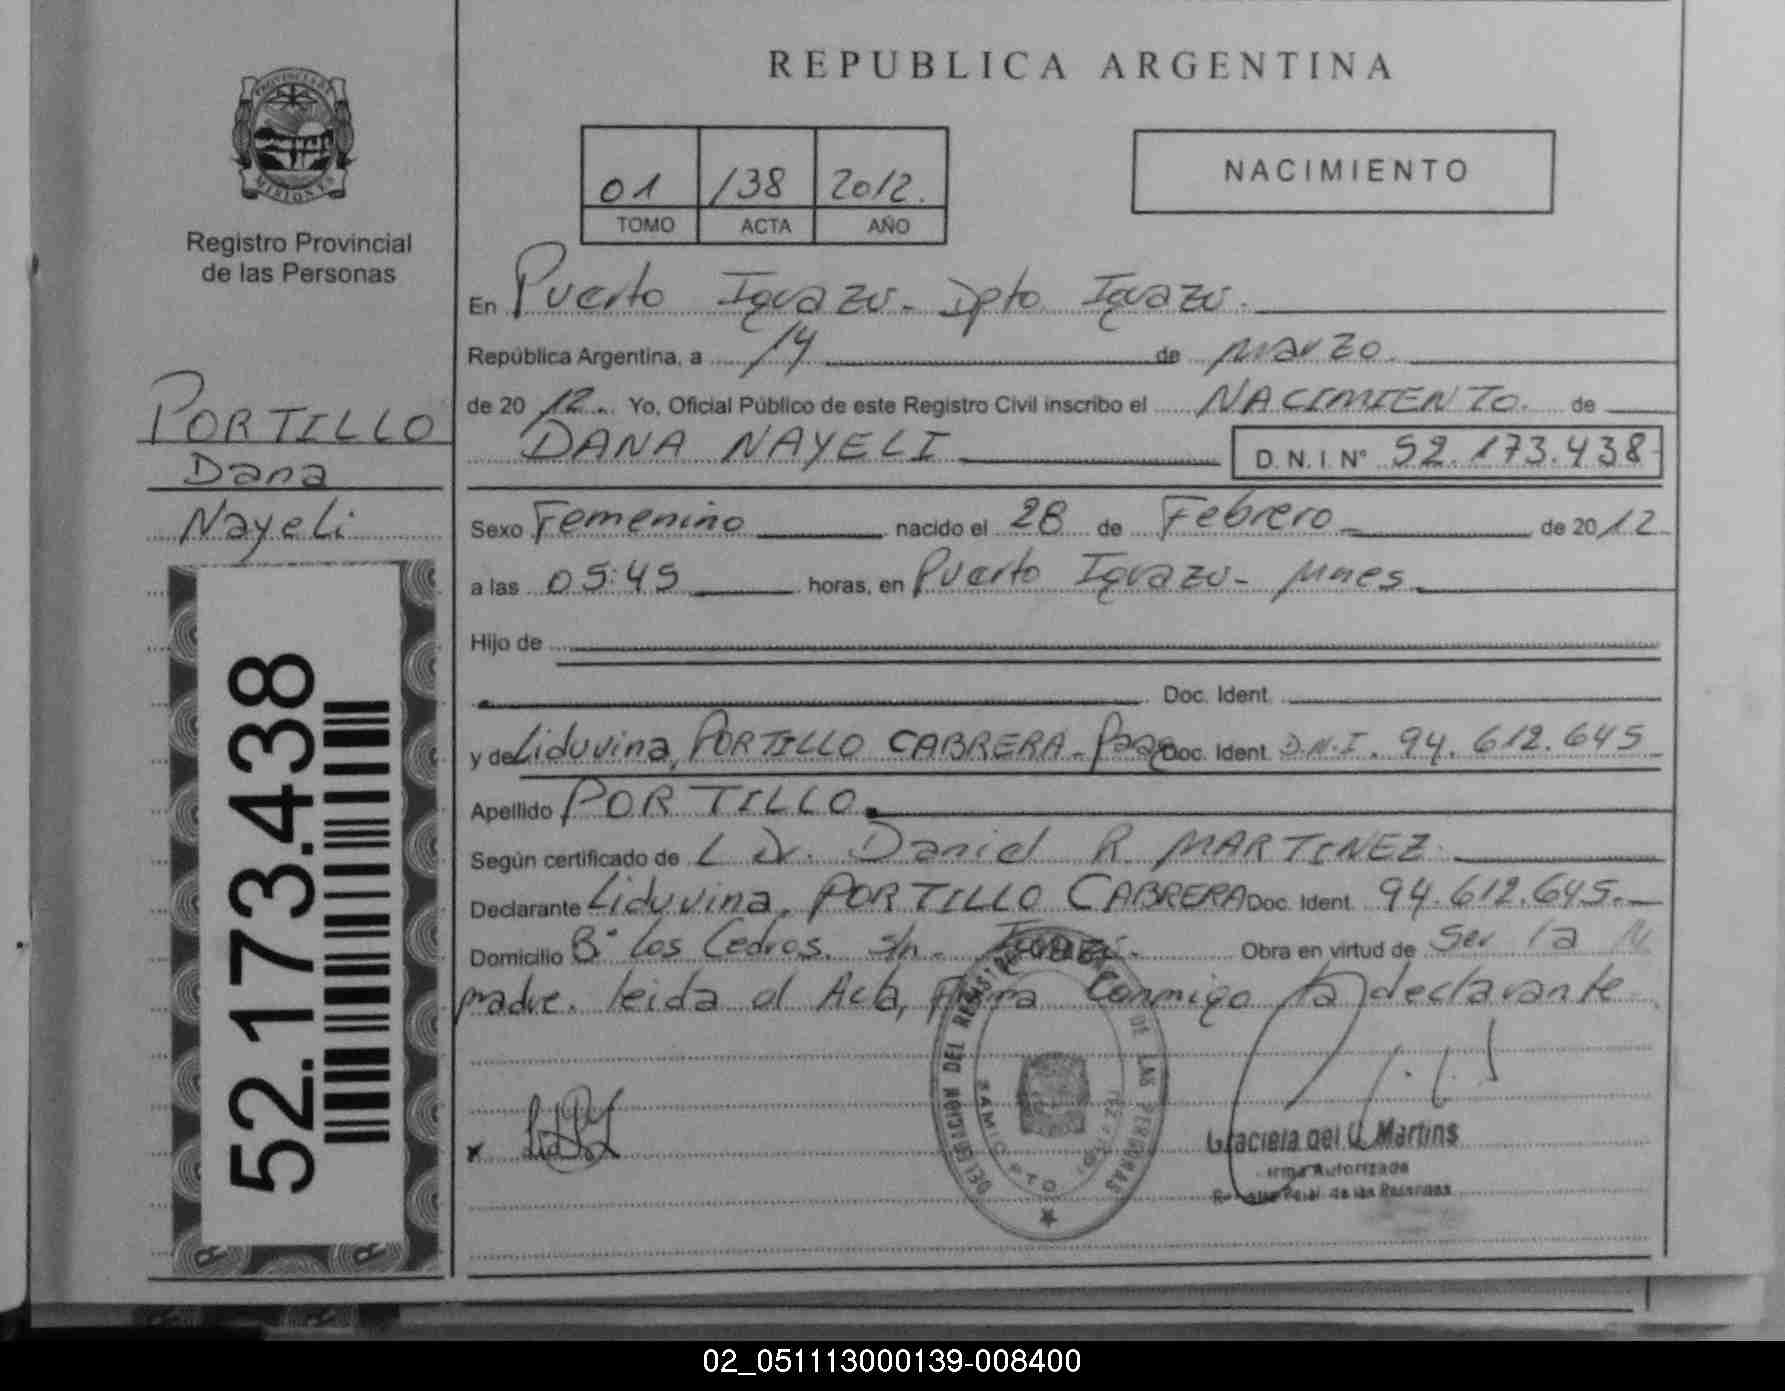 REPUBLICA ARGENTINA
PROVINCIA DE
MISIONES
Registro Provincial
de las Personas
01 138 2012.
TOMO ACTA AÑO
NACIMIENTO
PORTILLO
Dana
Nayeli
52.173.438
En Puerto Iguazú - Dpto Iguazú.
República Argentina, a 14 de marzo
de 20 12. Yo, Oficial Público de este Registro Civil inscribo el NACIMIENTO. de
DANA NAYELI D.N.I. N° 52.173.438
Sexo Femenino nacido el 28 de Febrero de 2012
a las 05:45 horas, en Puerto Iguazú - Mnes
Hijo de
Doc. Ident.
y de Liduvina, PORTILLO CABRERA - Doc. Ident. D.N.I. 94.612.645
Apellido PORTILLO.
Según certificado de L Dr. Daniel R. MARTINEZ
Declarante Liduvina, PORTILLO CABRERA Doc. Ident. 94.612.645.-
Domicilio B° Los Cedros. s/n - Iguazú - Obra en virtud de Ser la
madre. leida el Acta, firma conmigo la declarante
DELEGACION DEL REGISTRO DE LAS PERSONAS
Graciela del C. Martins
Firma Autorizada
Registro Pcial. de las Personas
02_051113000139-008400